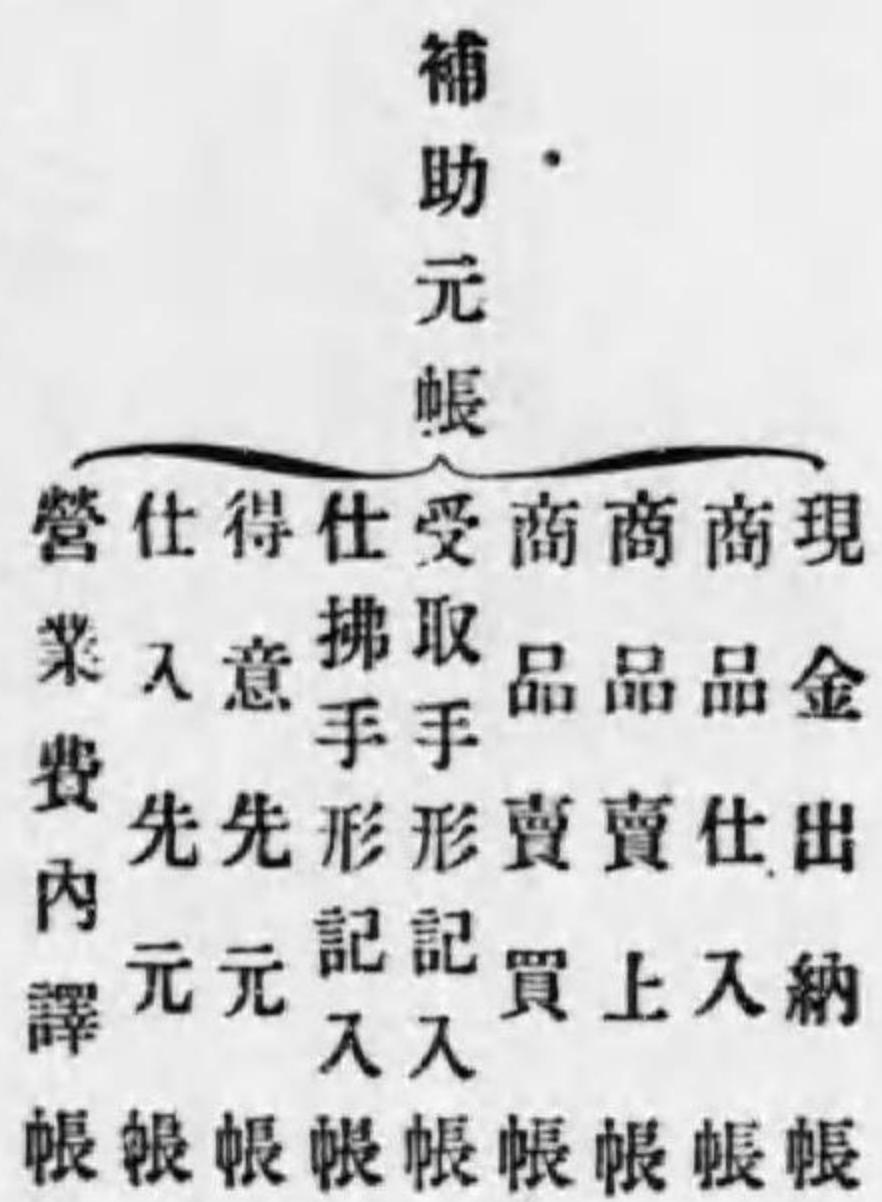 補助元帳
現金出納帳
商品仕入帳
商品賣上帳
商品賣買帳
受取手形記入帳
仕拂手形記入帳
得意先元帳
仕入先元帳
營業費內譯帳